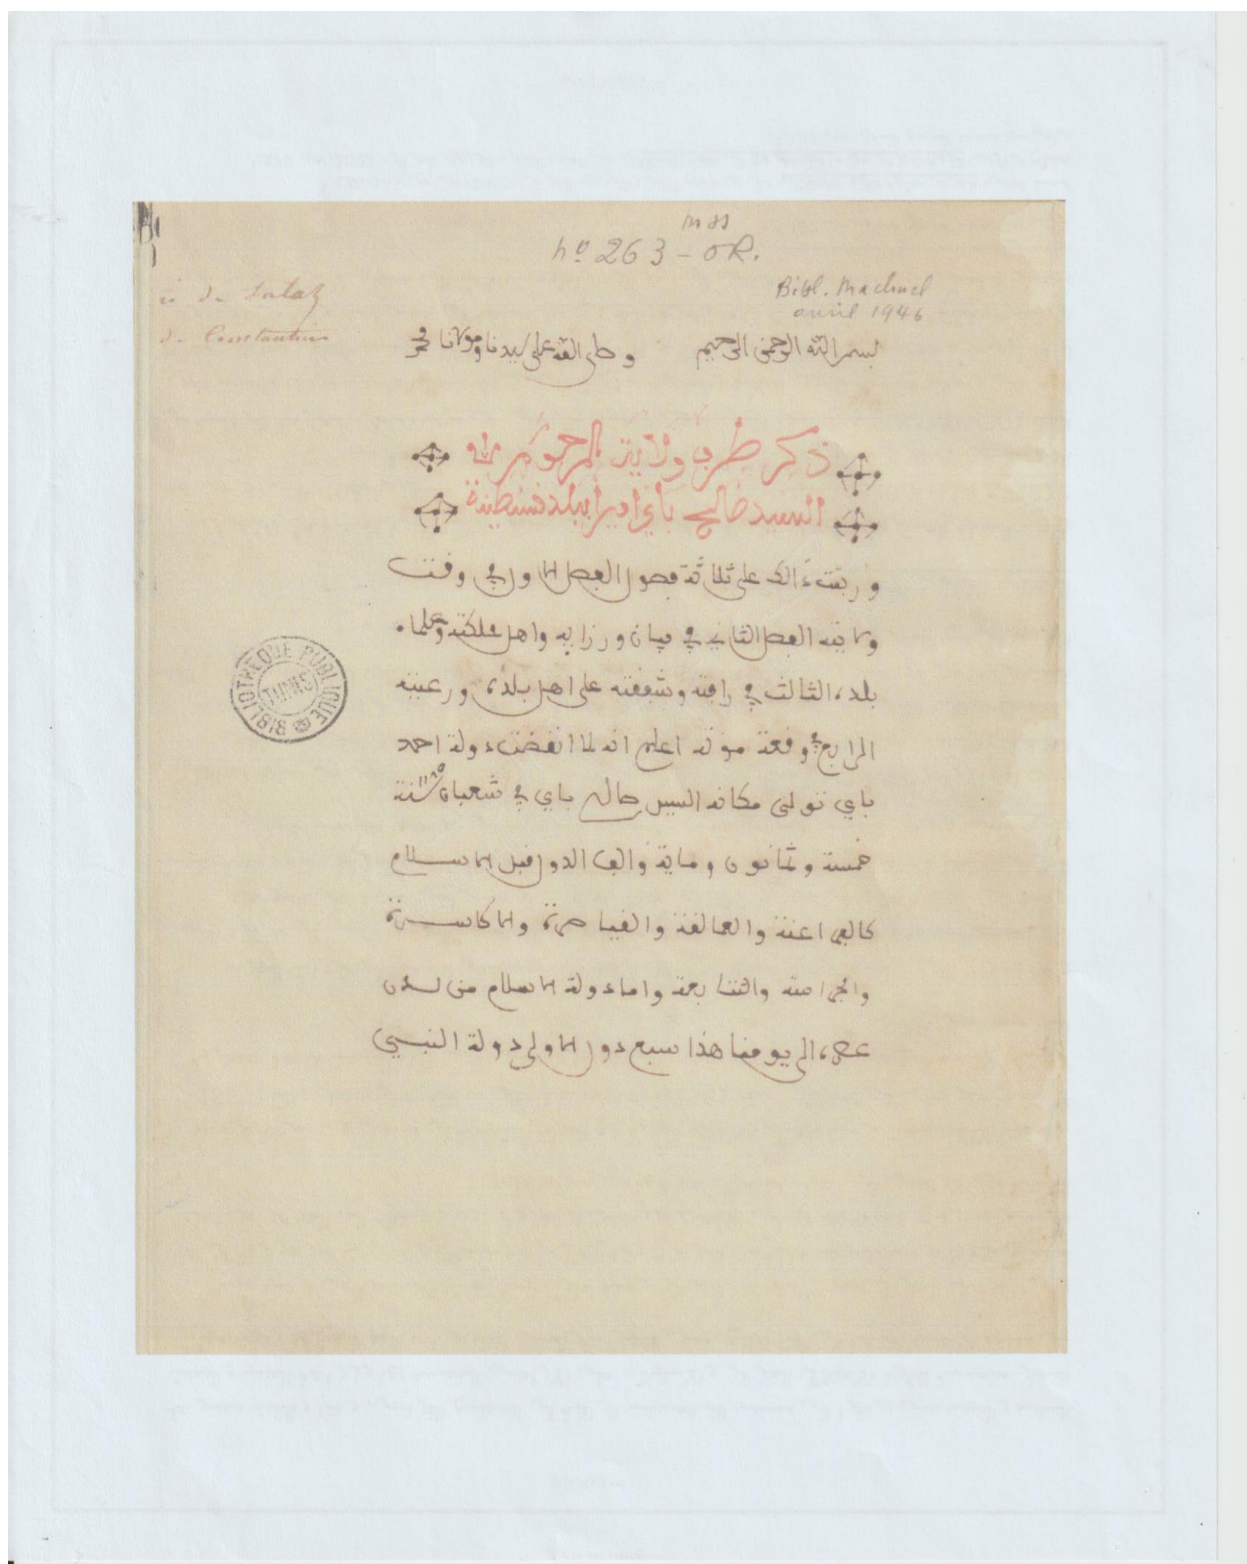 mss
no 263 - OR.
Bibl. Machuel
avril 1946
de Salah
de Constantine
بسم الله الرحمن الرحيم وصلى الله على سيدنا ومولانا محمد
ذكر طرف ولاية المرحوم بكرم الله
السيد صالح باي اميرا ببلد قسنطينة
ورتبت ذالك على ثلاثة فصول الفصل الاول في وقت
ولايته الفصل الثاني في بيان وزرايه واهل مملكته وعلماء
بلده الثالث في رافته وشفقته على اهل بلده ورعيته
الرابع في وقعة موته اعلم انه لما انقضت دولة احمد
باي تولى مكانه السيد صالح باي في شعبان سنة ١١٨٥
خمسة وثمانون وماية والف الدول قبل الاسلام
كالفراعنة والعمالقة والقياصرة والاكاسرة
والجرامقة والتتابعة واما دولة الاسلام من لدن
عصره الى يومنا هذا سبع دول الاولى دولة النبي
BIBLIOTHEQUE PUBLIQUE
TUNIS